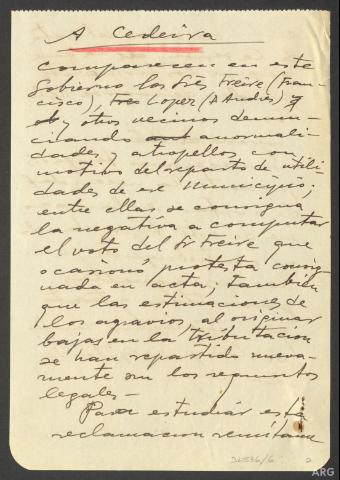 A Cedeira
comparecen en este
Gobierno los Sres Freire (Fran-
cisco), Lopez (D Andrés)
y otros vecinos denun-
ciando anormali-
dades y atropellos con
motivo del reparto de utili-
dades de ese Municipio;
entre ellas se consigna
la negativa a computar
el voto del Sr Freire que
ocasionó protesta consig-
nada en acta; también
que las estimaciones de
los agravios, al originar
bajas en la tributación
se han repartido nueva-
mente sin los requisitos
legales-
Para estudiar esta
reclamacion remítame
32536/6
2
ARG